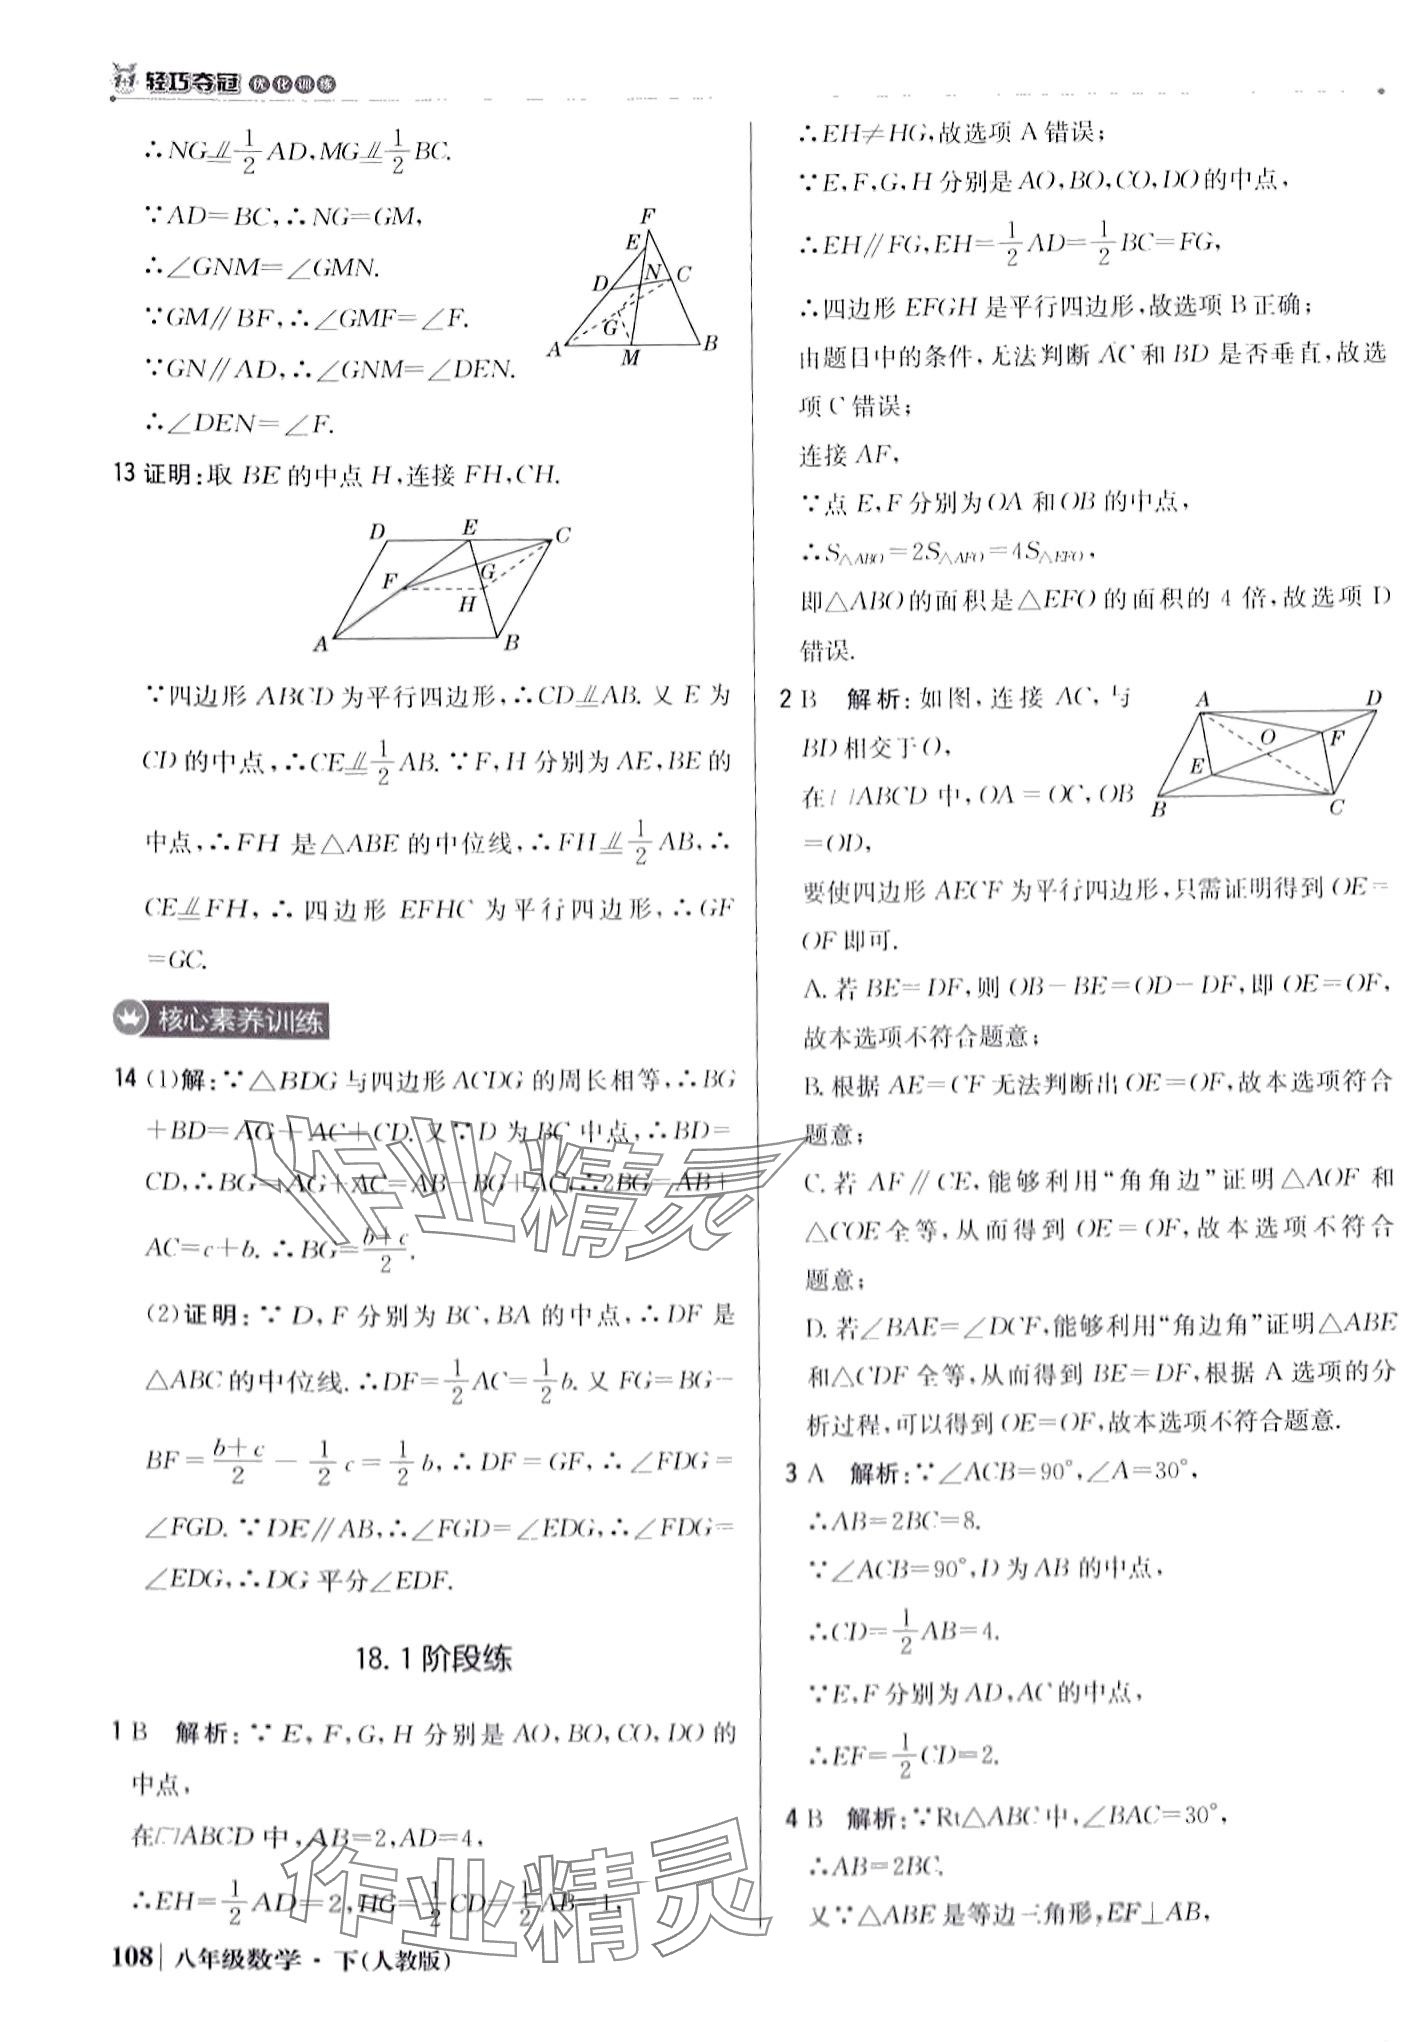 轻巧夺冠 优化训练
∴NG⫽½AD,MG⫽½BC.
∵AD=BC,∴NG=GM,
∴∠GNM=∠GMN.
∵GM∥BF,∴∠GMF=∠F.
∵GN∥AD,∴∠GNM=∠DEN.
∴∠DEN=∠F.
F
E
D
N
C
G
A
M
B
13 证明:取 BE 的中点 H,连接 FH,CH.
D
E
C
F
G
H
A
B
∵四边形 ABCD 为平行四边形,∴CD⫽AB. 又 E 为
CD 的中点,∴CE⫽½AB. ∵F,H 分别为 AE,BE 的
中点,∴FH 是△ABE 的中位线,∴FH⫽½AB,∴
CE⫽FH,∴四边形 EFHC 为平行四边形,∴GF
=GC.
核心素养训练
14 (1)解:∵△BDG 与四边形 ACDG 的周长相等,∴BG
+BD=AG+AC+CD. 又∵D 为 BC 中点,∴BD=
CD,∴BG=AG+AC=AB-BG+AC,∴2BG=AB+
AC=c+b. ∴BG=(b+c)/2.
(2)证明:∵D,F 分别为 BC,BA 的中点,∴DF 是
△ABC 的中位线. ∴DF=½AC=½b. 又 FG=BG-
BF=(b+c)/2-½c=½b,∴DF=GF,∴∠FDG=
∠FGD. ∵DE∥AB,∴∠FGD=∠EDG,∴∠FDG=
∠EDG,∴DG 平分∠EDF.
18.1 阶段练
1 B 解析:∵E,F,G,H 分别是 AO,BO,CO,DO 的
中点,
在▱ABCD 中,AB=2,AD=4,
∴EH=½AD=2,HG=½CD=½AB=1,
108 八年级数学·下(人教版)
∴EH≠HG,故选项 A 错误;
∵E,F,G,H 分别是 AO,BO,CO,DO 的中点,
∴EH∥FG,EH=½AD=½BC=FG,
∴四边形 EFGH 是平行四边形,故选项 B 正确;
由题目中的条件,无法判断 AC 和 BD 是否垂直,故选
项 C 错误;
连接 AF,
∵点 E,F 分别为 OA 和 OB 的中点,
∴S△ABO=2S△AFO=4S△EFO,
即△ABO 的面积是△EFO 的面积的 4 倍,故选项 D
错误.
2 B 解析:如图,连接 AC,与
BD 相交于 O,
在▱ABCD 中,OA=OC,OB
=OD,
A
D
O
F
E
B
C
要使四边形 AECF 为平行四边形,只需证明得到 OE=
OF 即可.
A. 若 BE=DF,则 OB-BE=OD-DF,即 OE=OF,
故本选项不符合题意;
B. 根据 AE=CF 无法判断出 OE=OF,故本选项符合
题意;
C. 若 AF∥CE,能够利用“角角边”证明△AOF 和
△COE 全等,从而得到 OE=OF,故本选项不符合
题意;
D. 若∠BAE=∠DCF,能够利用“角边角”证明△ABE
和△CDF 全等,从而得到 BE=DF,根据 A 选项的分
析过程,可以得到 OE=OF,故本选项不符合题意.
3 A 解析:∵∠ACB=90°,∠A=30°,
∴AB=2BC=8.
∵∠ACB=90°,D 为 AB 的中点,
∴CD=½AB=4.
∵E,F 分别为 AD,AC 的中点,
∴EF=½CD=2.
4 B 解析:∵Rt△ABC 中,∠BAC=30°,
∴AB=2BC.
又∵△ABE 是等边三角形,EF⊥AB,
作业精灵
作业精灵